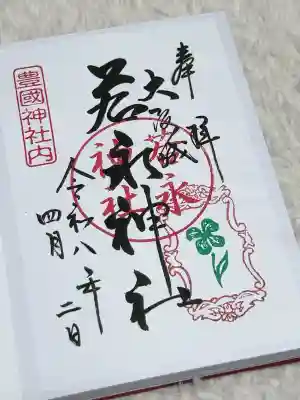 奉拝
大阪城
若永神社
若永神社
令和八年
四月二日
豊國神社内